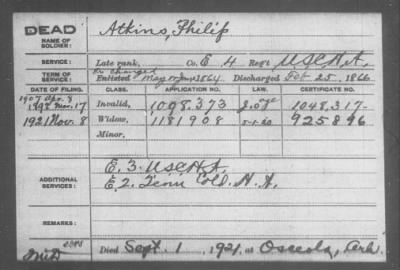 DEAD
NAME OF SOLDIER: Atkins, Philip
SERVICE: Late rank, Co. E 4 Reg't U.S.C.H.A.
TERM OF SERVICE: Enlisted 1864. Discharged Feb 25, 1866
DATE OF FILING. CLASS. APPLICATION NO. LAW. CERTIFICATE NO.
1907 Apr. 
1898 Mar. 17 Invalid, 1098,373 1048,317
1921 Nov. 8 Widow, 1181908 5-1-20 925896
Minor,
ADDITIONAL SERVICES: E. 3. U.S.C.H.A.
E 2. Tenn Cold. H.A.
REMARKS:
Died Sept. 1, 1921, at Osceola, Ark